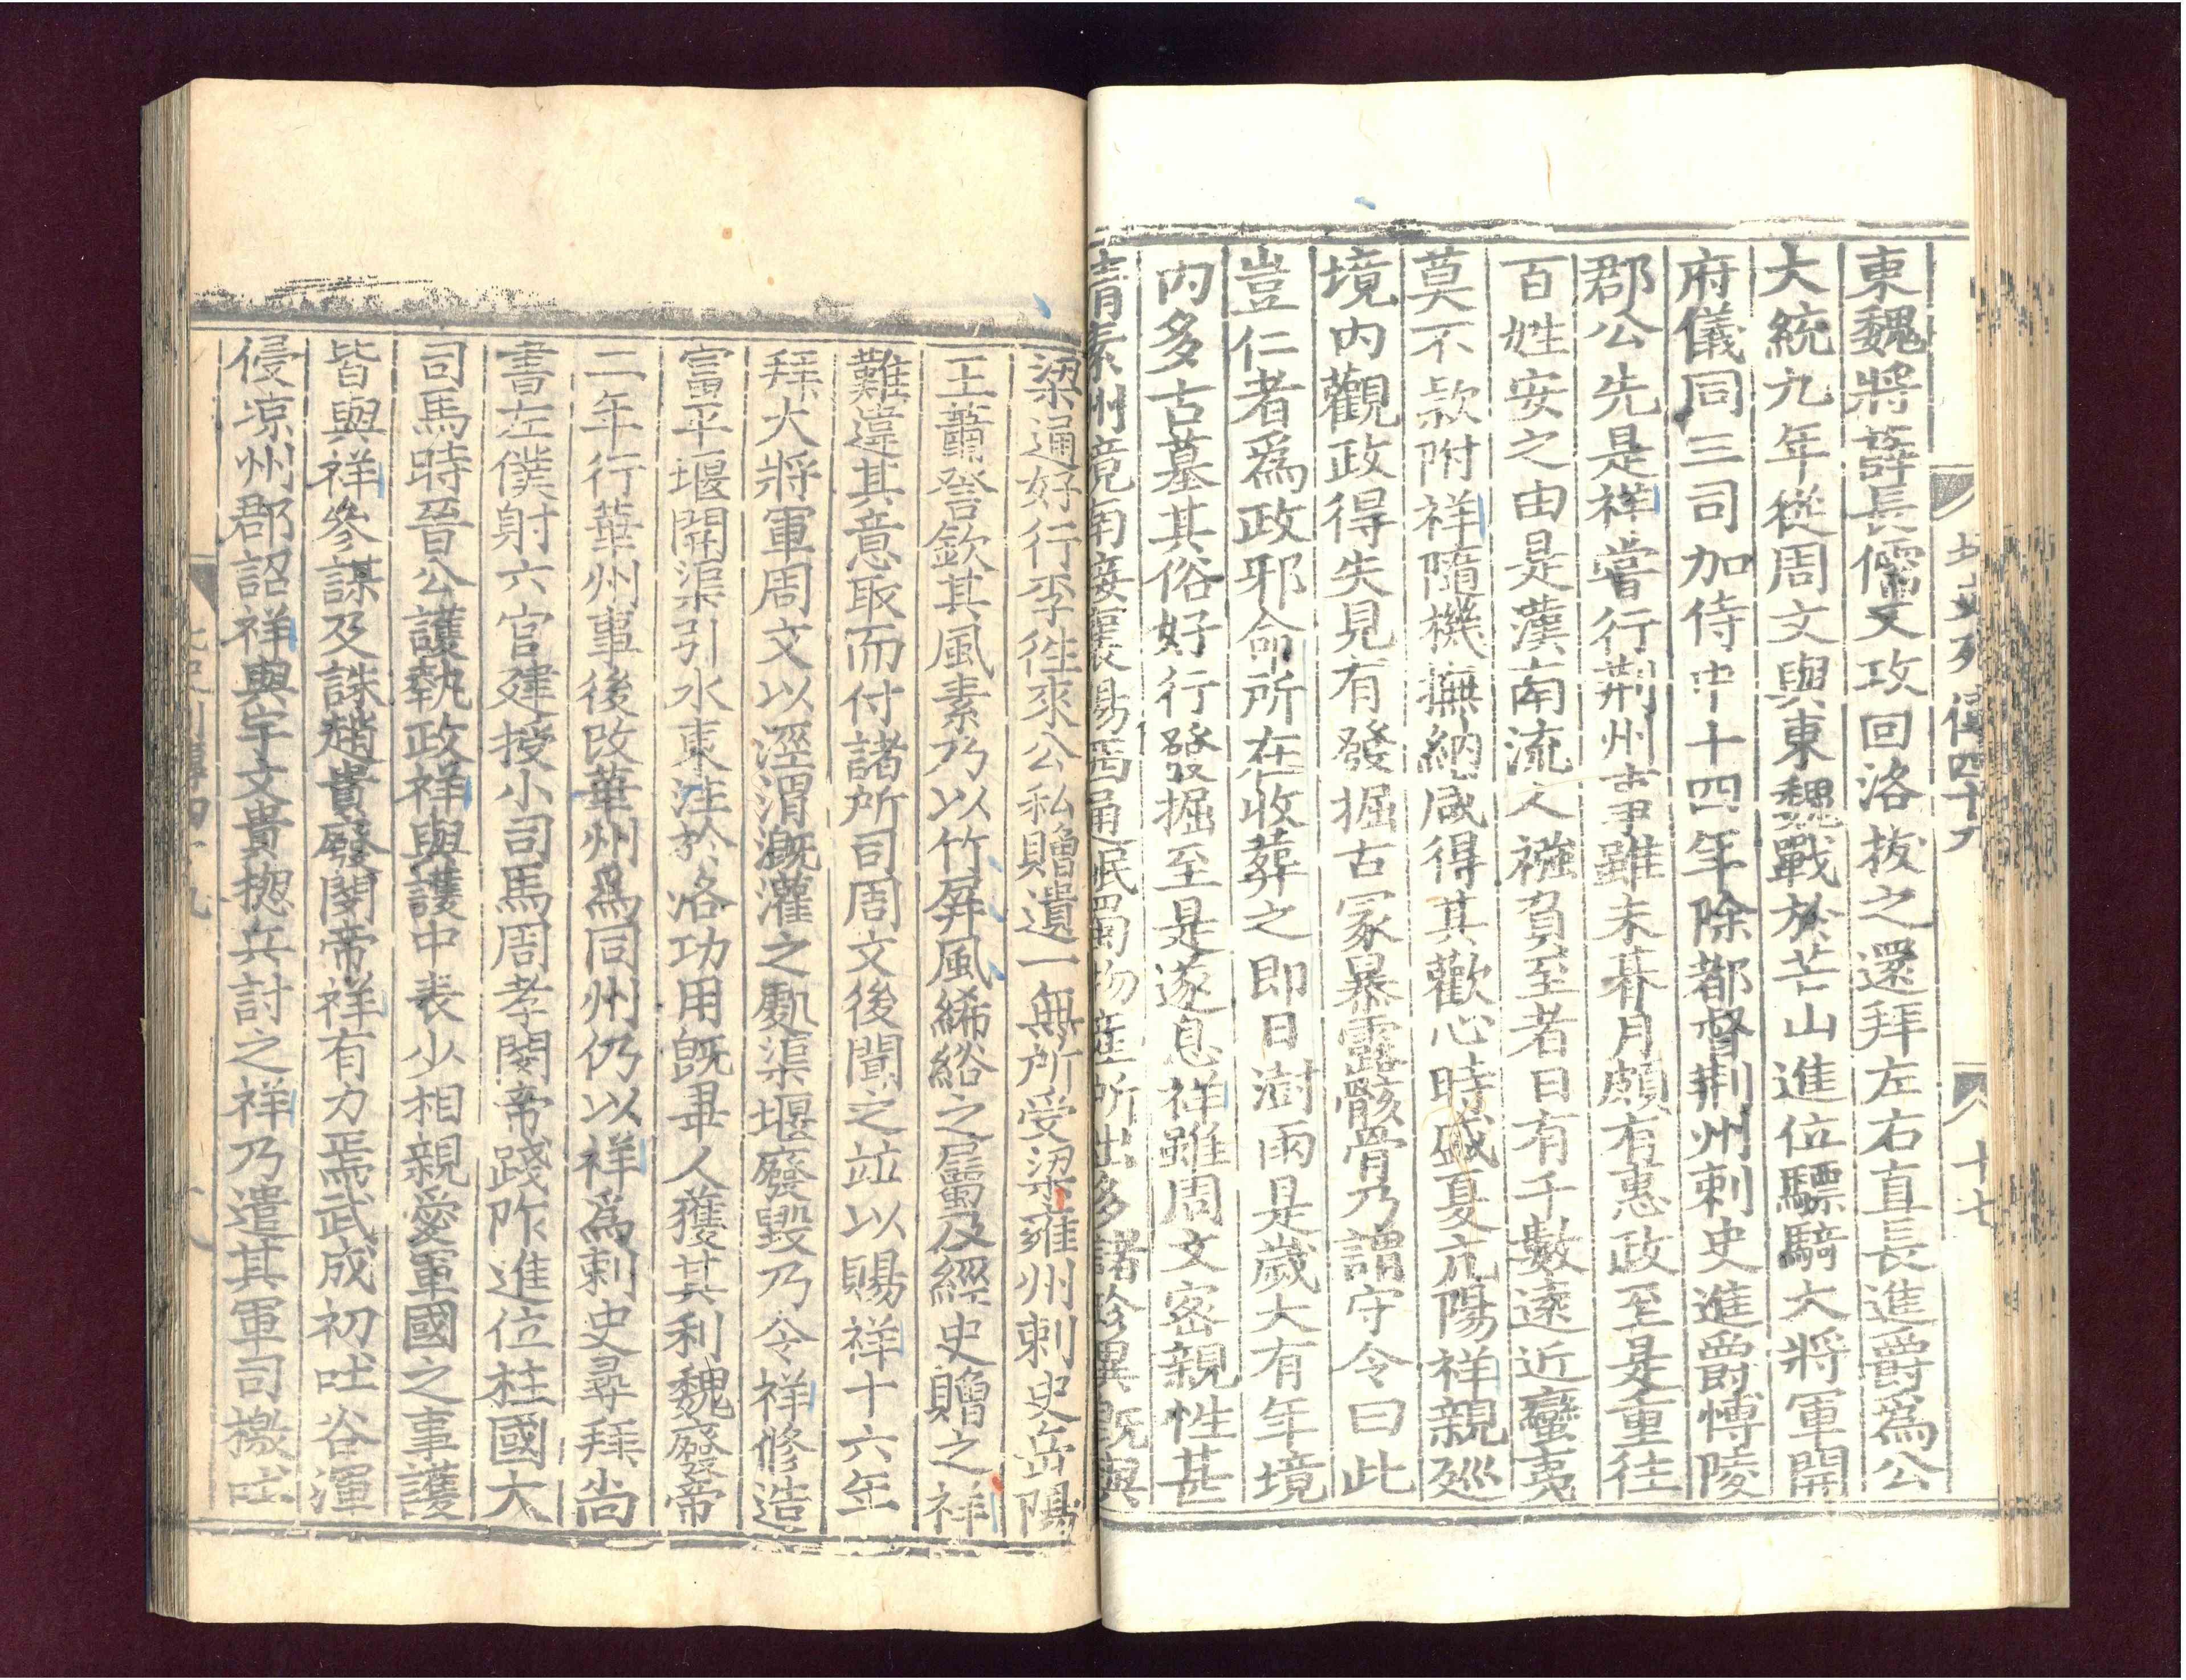 東魏將薛長儒又攻回洛拔之還拜左右直長進爵爲公
大統九年從周文與東魏戰於芒山進位驃騎大將軍開
府儀同三司加侍中十四年除都督荆州刺史進爵愽陵
郡公先是祥嘗行荆州事雖未朞月頗有惠政至是重往
百姓安之由是漢南流人襁負至者日有千數遠近蠻夷
莫不款附祥隨機撫納咸得其歡心時盛夏亢陽祥親廵
境内觀政得失見有發掘古冢暴露骸骨乃謂守令曰此
豈仁者爲政邪命所在收葬之即日澍雨是歲大有年境
内多古墓其俗好行發掘至是遂息祥雖周文密親性甚
清素州境南接襄陽西通岷蜀物産所出多諸珍異旣與
梁通好行李徃來公私贈遺一無所受梁雍州刺史岳陽
王蕭詧欽其風素乃以竹屏風絺綌之屬及經史贈之祥
難違其意取而付諸所司周文後聞之竝以賜祥十六年
拜大將軍周文以涇渭漑灌之處渠堰廢毀乃令祥修造
富平堰開渠引水東注於洛功用旣畢人獲其利魏廢帝
二年行華州事後改華州爲同州仍以祥爲刺史尋拜尚
書左僕射六官建授小司馬周孝閔帝踐阼進位柱國大
司馬時晉公護執政祥與護中表少相親愛軍國之事護
皆與祥參謀及誅趙貴廢閔帝祥有力焉武成初吐谷渾
侵凉州郡詔祥與宇文貴揔兵討之祥乃遣其軍司檄吐
北史列傳四十九
十七